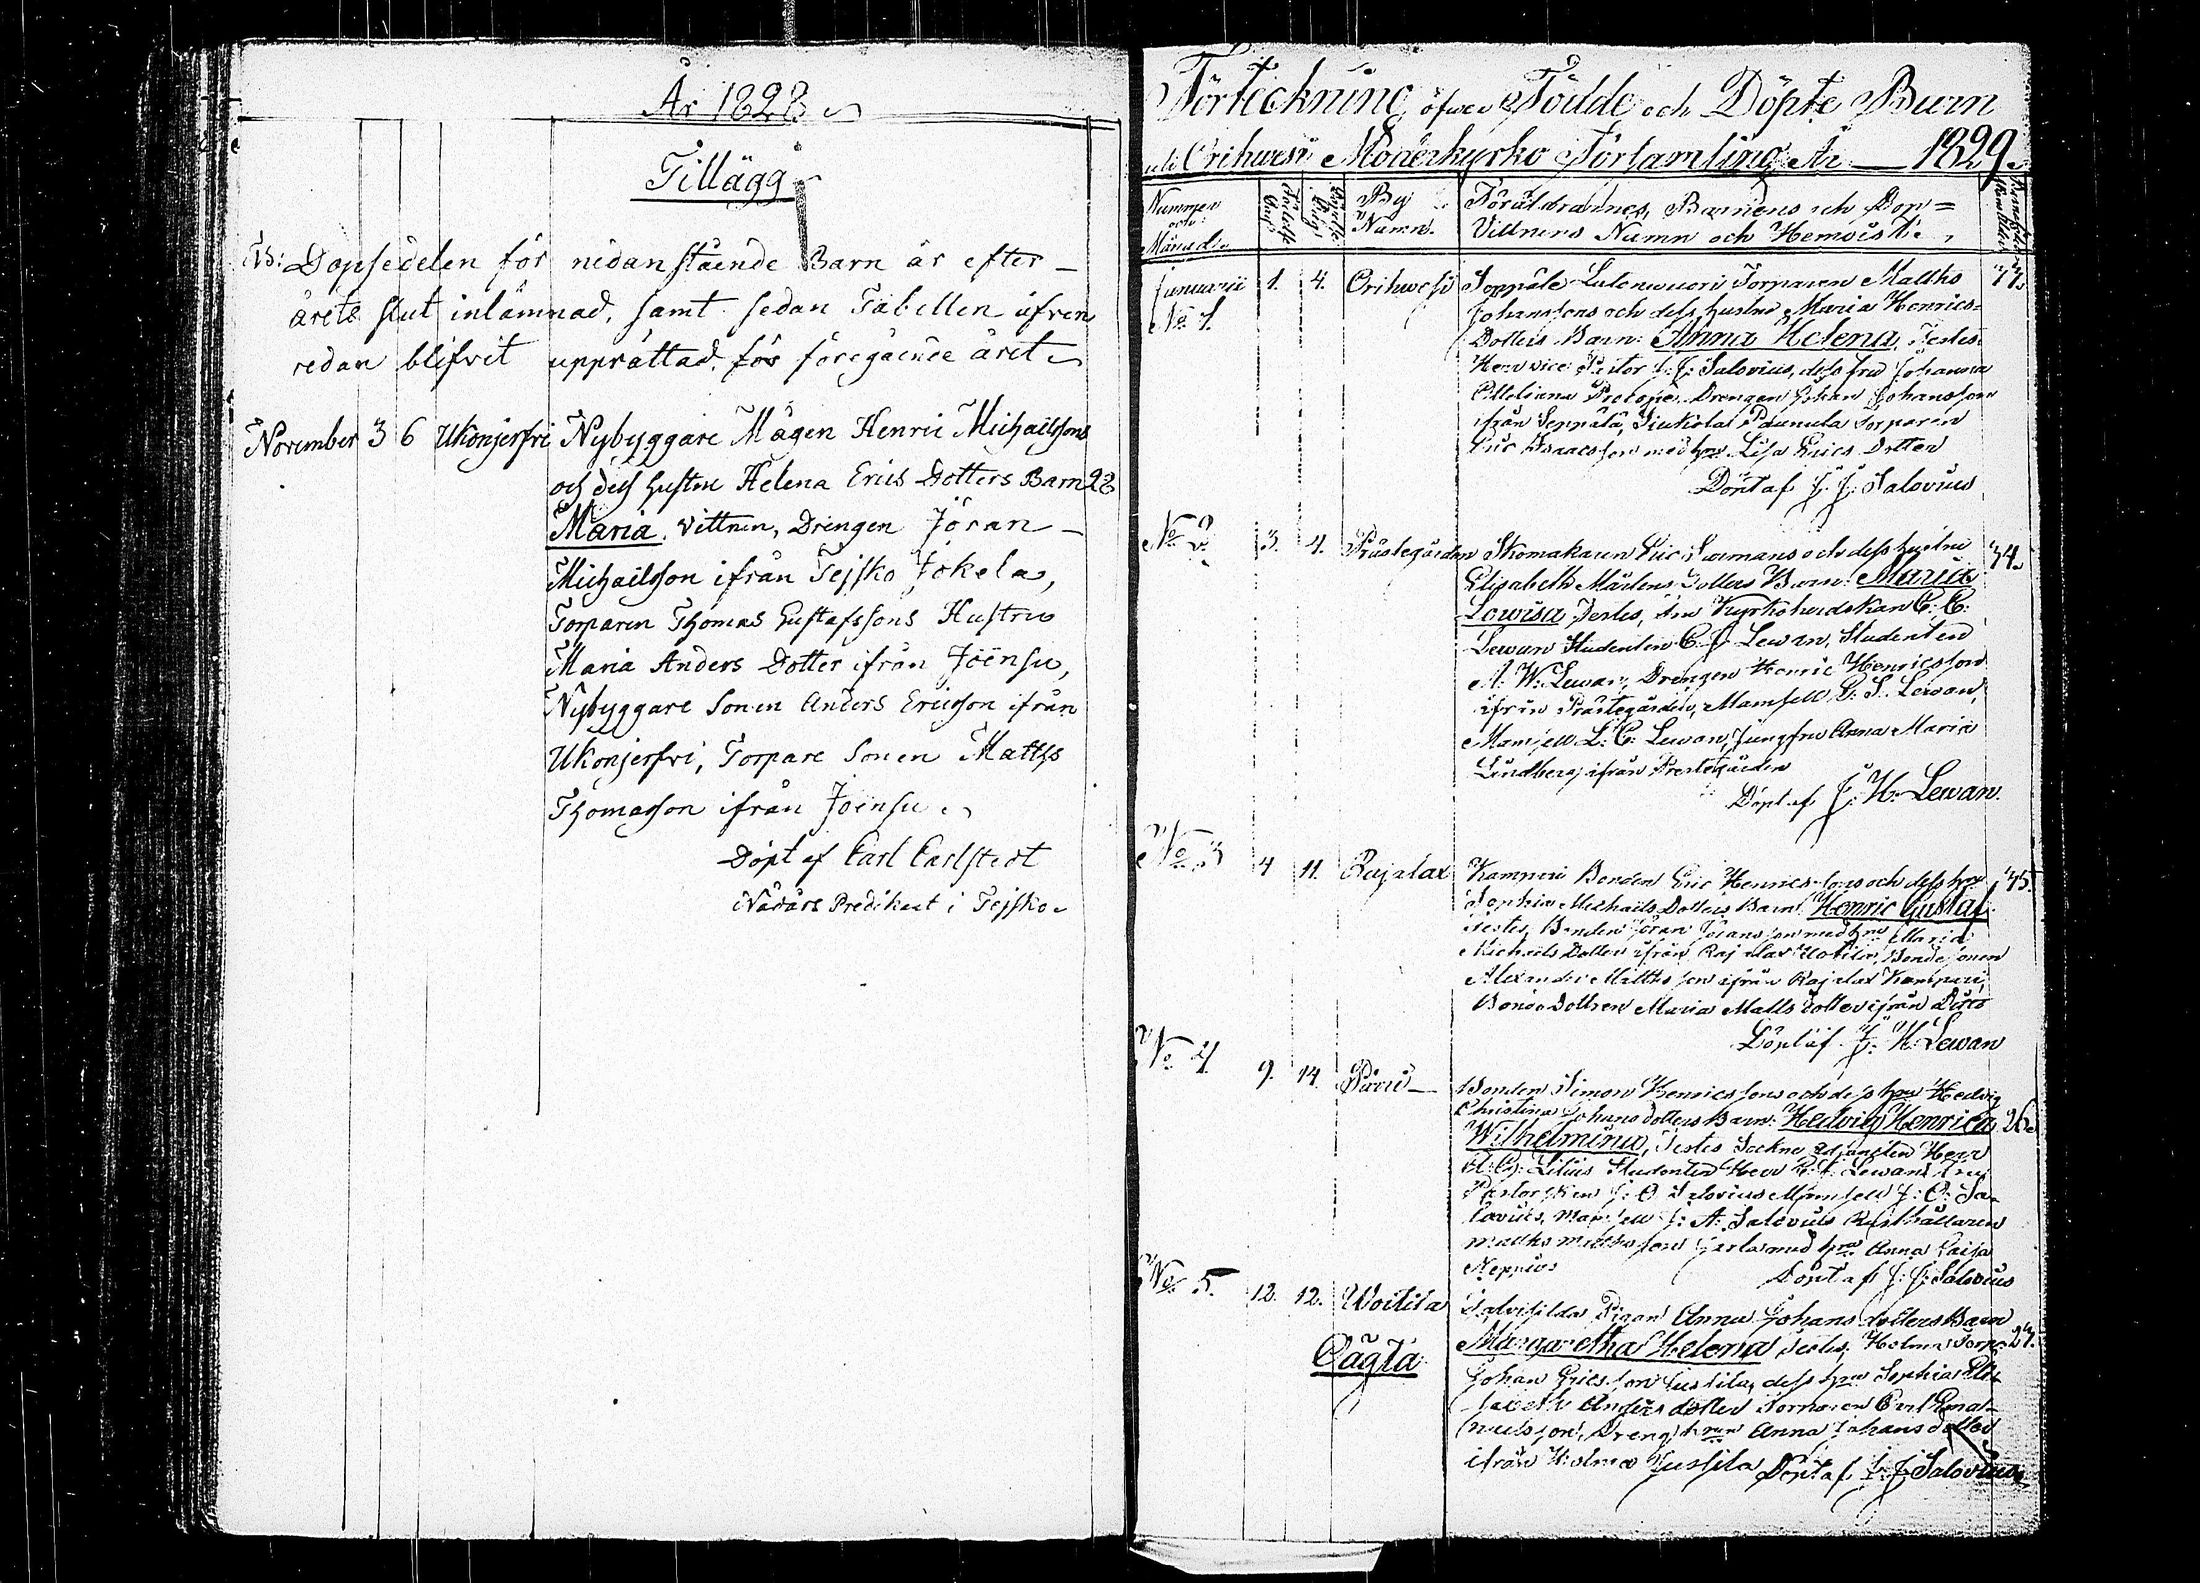 År 1828
Tillägg
NB: Dopsedelen för nedanstående Barn är efter
årets slut inlämnad, samt sedan Tabellen äfven
redan blifvit upprättad för föregående året
November 3 6 Ukonjerfvi Nybyggare Mågen Henric Michailssons
och dess hustru Helena Erics Dotters Barn 28
Maria. Vittnen, Drengen Jöran
Michailsson ifrån Tejsko Jokela,
Torparen Thomas Gustafssons Hustru
Maria Anders Dotter ifrån Joënsu,
Nybyggare Sonen Anders Ericsson ifrån
Ukonjerfvi, Torpare Sonen Matths
Thomasson ifrån Joënsu
Döpt af Carl Carlstedt
Nådårs Predikant i Tejsko
Förteckning öfver Födde och Döpte Barn
uti Orihwesi Moderkyrko Församling År 1829.
Nummer och Månad
By Namn.
Föräldrarnes, Barnens och Dop=
Vittnens Namn och Hemvist.
Januarii 1. 4. Orihwesi Seppälä Torparen Matths
No 1.
Johanssons och dess hustru Maria Henrics=
Dotters Barn: Anna Helena, Testes:
Herr vice Pastor J: J: Salovius, dess fru Johanna
Drengen Johan Johansson
ifrån Seppälä, Paunula Torparen
Eric Isaacsson med hru Lisa Erics Dotter
Döpt af J: J: Salovius
No 2 3. 4. Prästegården Skomakaren Eric och dess hustru 34.
Elisabeth Mårtens Dotters Barn: Maria
Lowisa, Testes, Fru Kyrkoherdskan C: C:
Lewan Studenten C. J. Lewan, Studenten
A: W: Lewan, Drengen Henric Henricsson
ifrån Prästegården, Mamsell G: S. Lewan,
Mamsell L: C: Lewan, Jungfru Anna Maria
Lindberg ifrån Prestegården
Döpt af J: H: Lewan.
No 3 4 11. Rajalax Kamperi Bonden Eric Henrics-sons och dess hru 35.
Sophia Michails Dotters Barn: Henric Gustaf.
Testes, Bonden Jöran Jöransson med hru Maria
Michaels Dotter ifrån Rajalax Uotila, Bondesonen
Alexander Mattsson ifrån Rajalax Kamperi,
Bonde Dottren Maria Matts Dotter ifrån Dito
Döpt af J: H: Lewan
No 4. 9. 14. Bonden Simon Henricssons och dess hru Hedvig
Christina Johans Dotters Barn: Hedvig Henrica 26.
Wilhelmina, Testes Sockne adjuncten Herr
A: G: Lilius Studenten Herr C: J: Lewan, Fru
Pastorskan J: O Salovius Mamsell J: O: Sa-
lovius, Mamsell J: A: Salovius Rusthållaren
Matths Mattsson med hru Anna Caisa
Neppius
Döpt af J: J: Salovius
No 5. 12. 12. Woitila Pigan Anna Johans dotters Barn
Oägta
Margaretha Helena Testes, 27.
Johan Ericsson Jussila, dess hru Sophia Eli-
sabeth Anders dotter Torparen Carl Ema-
nuelsson, Dreng hrun Anna Johans dotter
ifrån Jussila Döpt af J: J: Salovius